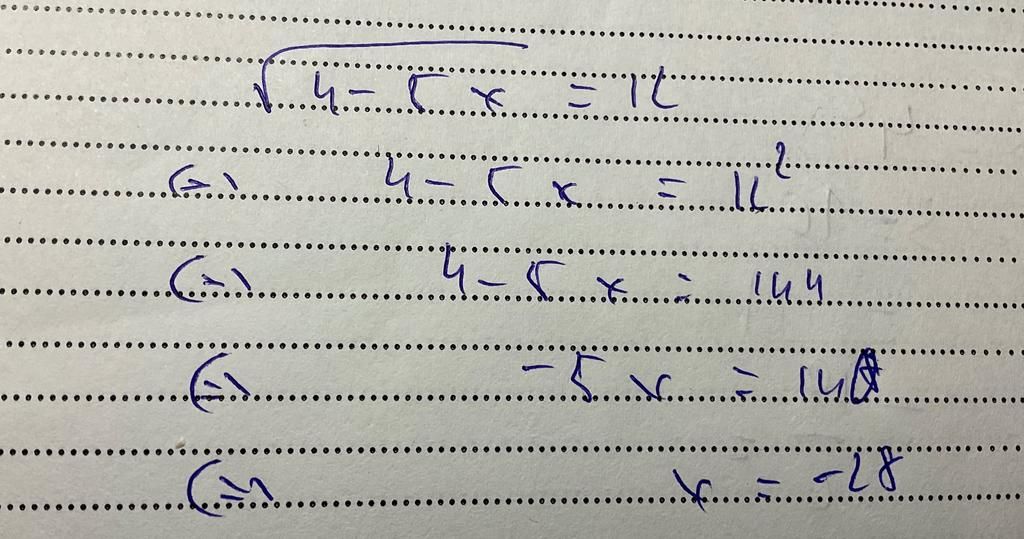 √(4 - 5x) = 12
<=> 4 - 5x = 12²
<=> 4 - 5x = 144
<=> -5x = 140
<=> x = -28